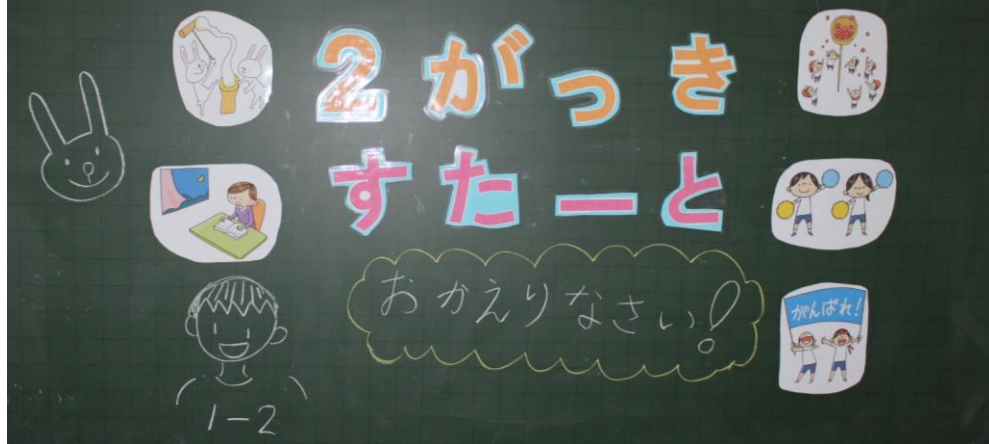 2がっき
すたーと
おかえりなさい!
がんばれ!
1-2